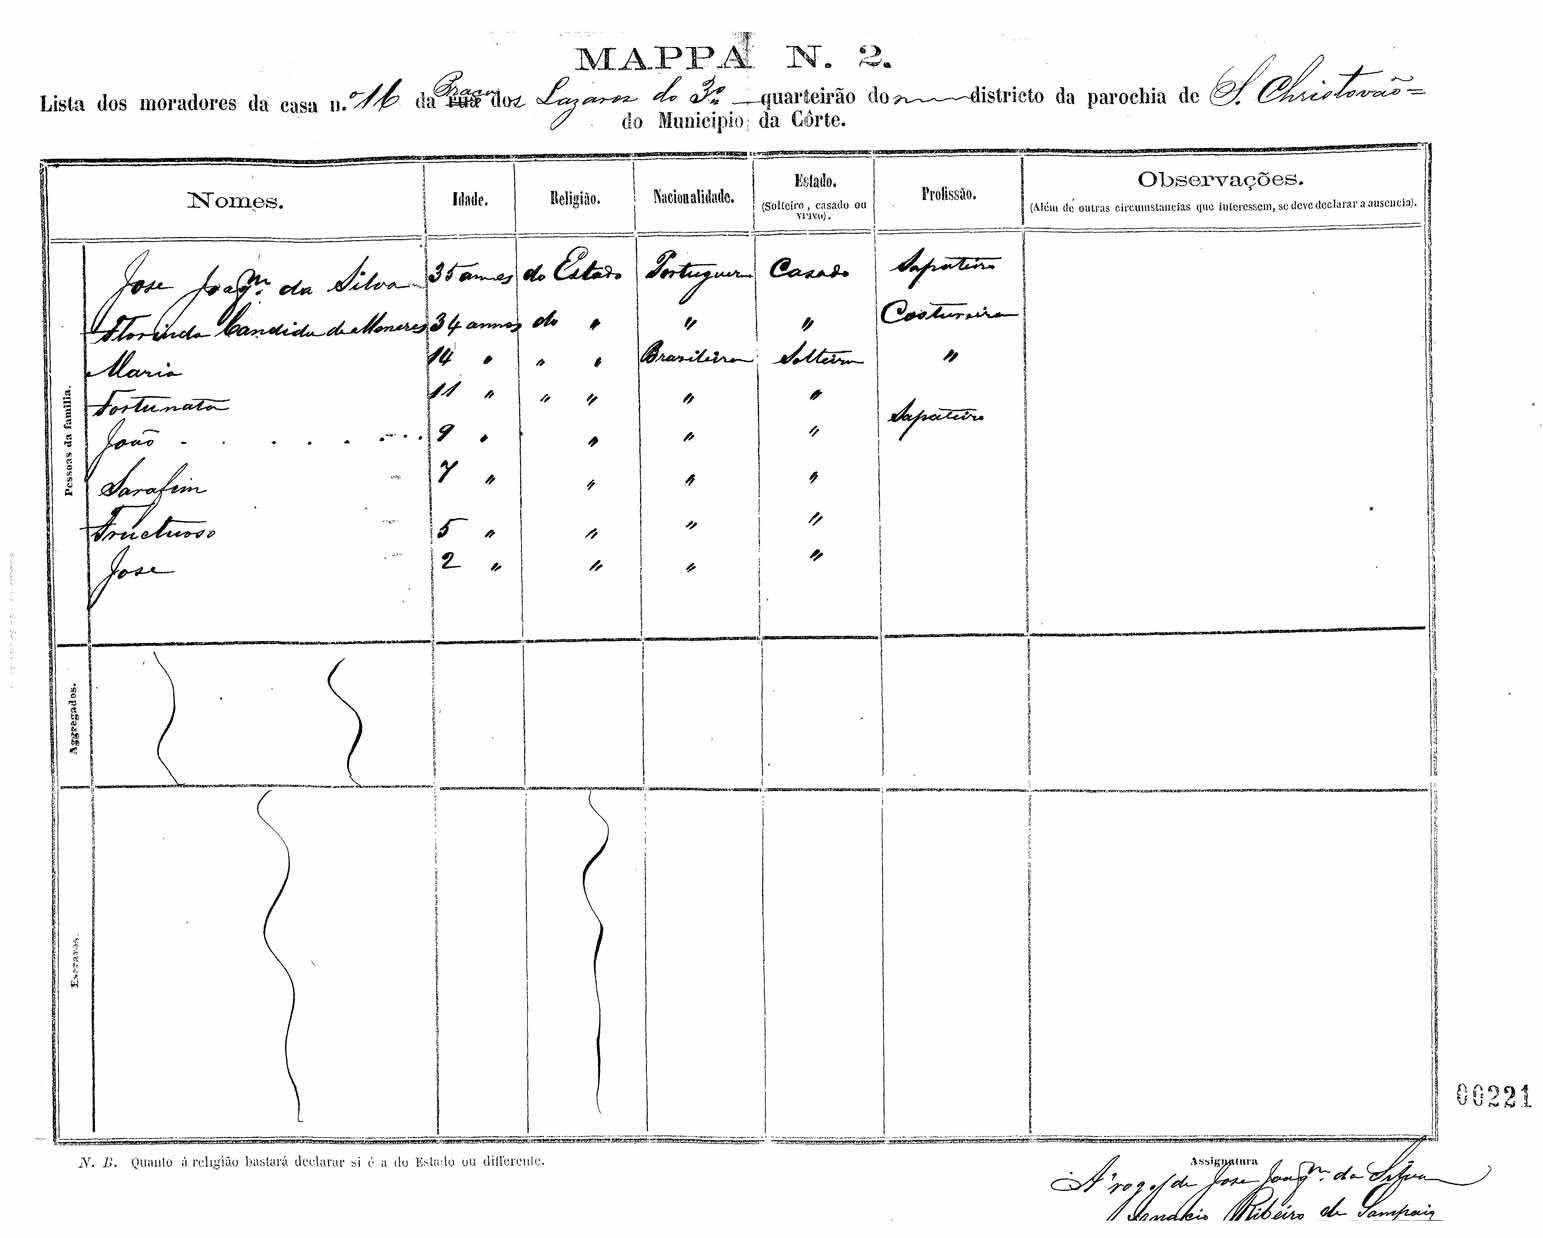 MAPPA N. 2.
Praça
Lista dos moradores da casa n.º 16 da rua dos Lazaros do 3º quarteirão do districto da parochia de S. Christovão
do Municipio da Côrte.
Nomes. Idade. Religião. Nacionalidade. Estado. (Solteiro, casado ou viuvo). Profissão. Observações. (Além de outras circumstancias que interessem, se deve declarar a ausencia).
Pessoas da familia.
Jose Joaqm. da Silva 35 annos do Estado Portuguez Casado Sapateiro
Florinda Candida de Menezes 34 annos do " " " Costureira
Maria 14 " " " Brazileira Solteira "
Fortunata 11 " " " " "
João . . . . . . . . 9 " " " " Sapateiro
Sarafim 7 " " " "
Fructuoso 5 " " " "
Jose 2 " " " "
Aggregados.
Escravos.
00221
N. B. Quanto á religião bastará declarar si é a do Estado ou differente.
Assignatura
A' rogo de Jose Joaqm. da Silva
Ignacio Ribeiro de Sampaio